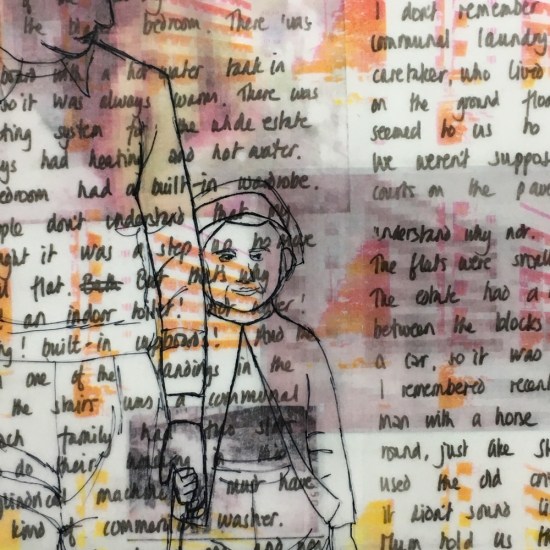 the bedroom. There was
board with a hot water tank in
so it was always warm. There was
ting system for the whole estate
ys had heating and hot water.
edroom had a built-in wardrobe.
ple don't understand that my
ght it was a step up to move
flat. But that's why
an indoor toilet! Hot water!
ng! built-in cupboards! And the
n one of the landings in the
the stairs was a communal
ach family had two slots
do their washing in this
lindrical machine must have
kind of commercial washer.
I don't remember
communal laundry
caretaker, who lived
on the ground floo
seemed to us to
We weren't suppos
courts on the pav
understand why not.
The flats were small
The estate had a
between the blocks
a car, so it was
I remembered recen
man with a horse
round, just like St
used the old
it didn't sound li
Mum told us th